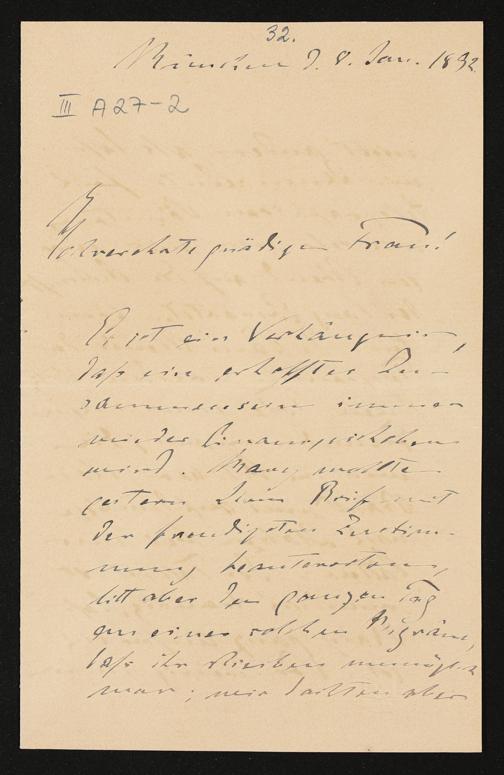 32.
München d. 8. Jan. 1892
III A27-2
Hochverehrte gnädige Frau!
Es ist ein Verhängnis,
daß ein erhofftes Zu-
sammensein immer
wieder hinausgeschoben
wird. Mary wollte
gestern Ihren Brief mit
der freudigsten Zustim-
mung beantworten,
litt aber den ganzen Tag
an einer solchen Migräne,
daß ihr Schreiben unmöglich
war; wir hatten aber